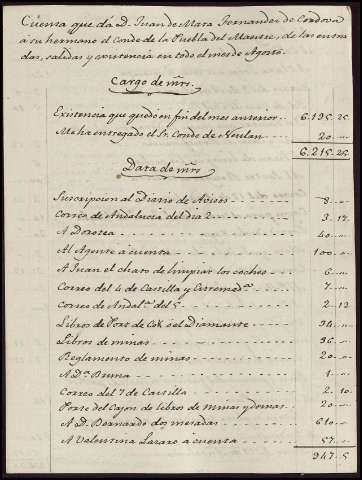 Cuenta que da D. Juan de Mata Fernandez de Cordova
a su hermano el Conde de la Puebla del Maestre, de las entra
das, salidas y existencia en todo el mes de Agosto.
Cargo de mrs.
Existencia que quedó en fin del mes anterior.. 6.195. 25.
Me ha entregado el Sr. Conde de Neulan.. 20. ..
6.215. 25.
Data de mrs
Suscripcion al Diario de Avisos 8 ..
Correo de Andalucia del dia 2 3. 17.
A Dorotea 40 ..
Al Agente á cuenta 100 ..
A Juan el chato de limpiar los coches 6 ..
Correo del 4 de Castilla y Estremad.a 7 ..
Correo de Andal.a del 5 2. 12
Libro de Port de Cok ó el Diamante 34 ..
Libros de minas 36 ..
Reglamento de minas 20 ..
A D.a Bruna 1 ..
Correo del 7 de Castilla 2. 10
Porte del Cajon de libros de minas y demas 20 ..
A D. Bernardo dos mesadas 610 ..
A Valentina Lazaro á cuenta 57 ..
947. 5